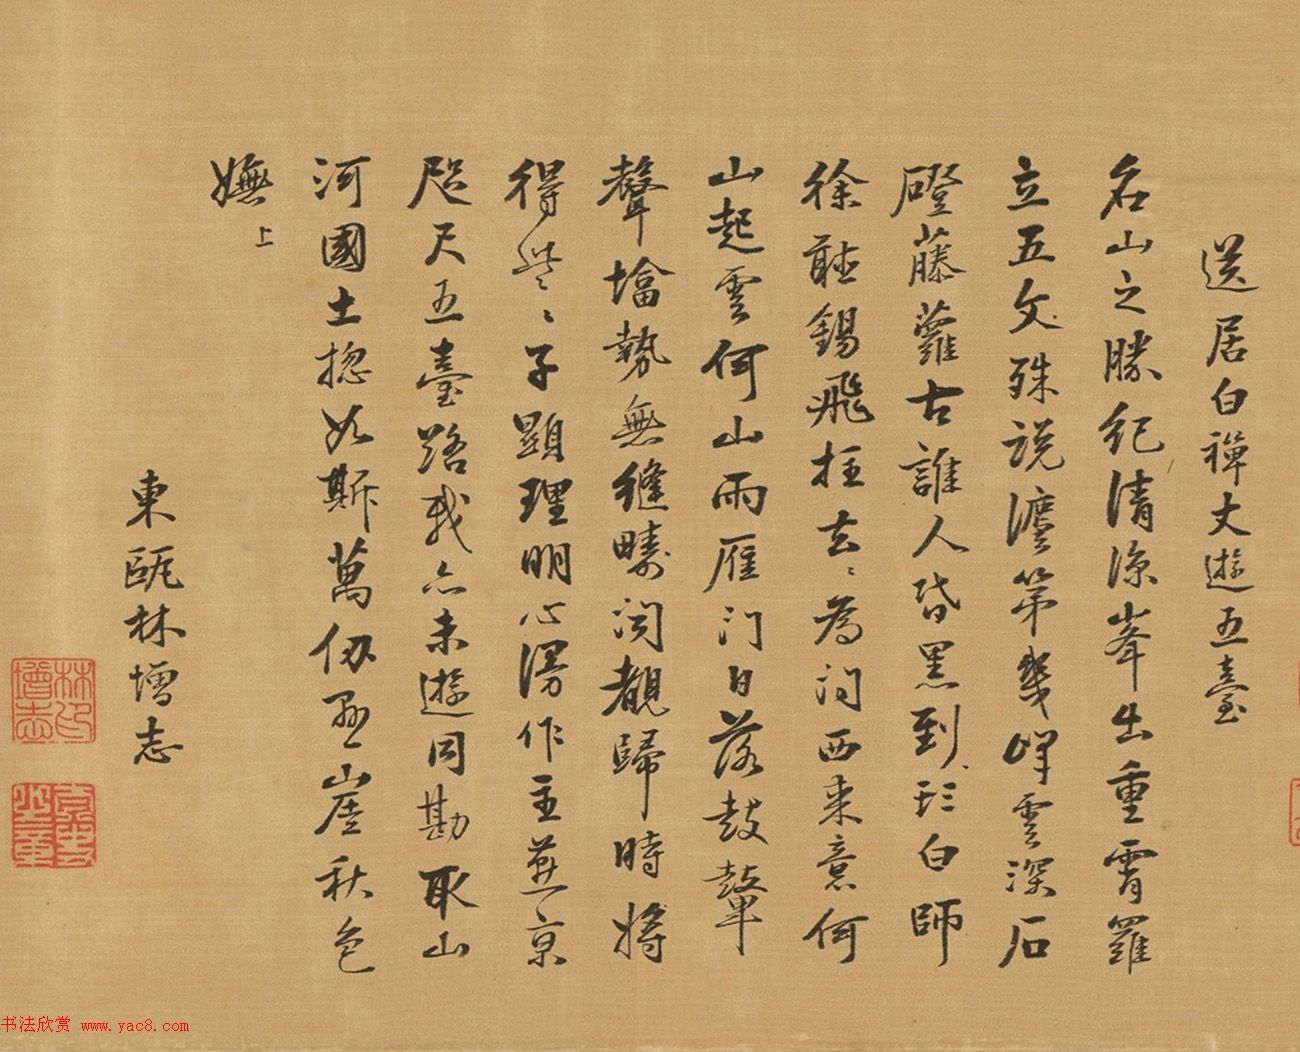 送居白禪丈遊五臺
名山之勝紀清涼峯出重霄羅
立五文殊說第幾峰雲深石
磴藤蘿古誰人昏黑到白師
徐聽錫飛拄去〻為問西來意何
山起雲何山雨雁門日落鼓鼙
聲墖勢無縫疇覩歸時將
得些〻子顯理明心漫作主燕京
咫尺五臺路我亦未遊同勘取山
河國土揔如斯萬仞懸崖秋色
嫵上
東甌林增志
林印增志
书法欣赏 www.yac8.com